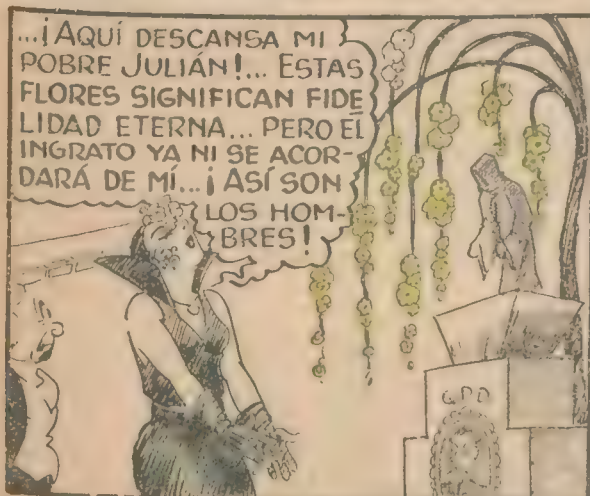 ...¡AQUÍ DESCANSA MI
POBRE JULIÁN!... ESTAS
FLORES SIGNIFICAN FIDE
LIDAD ETERNA... PERO ÉL
INGRATO YA NI SE ACOR-
DARÁ DE MÍ...¡ASÍ SON
LOS HOM-
BRES!
Q.D.D.